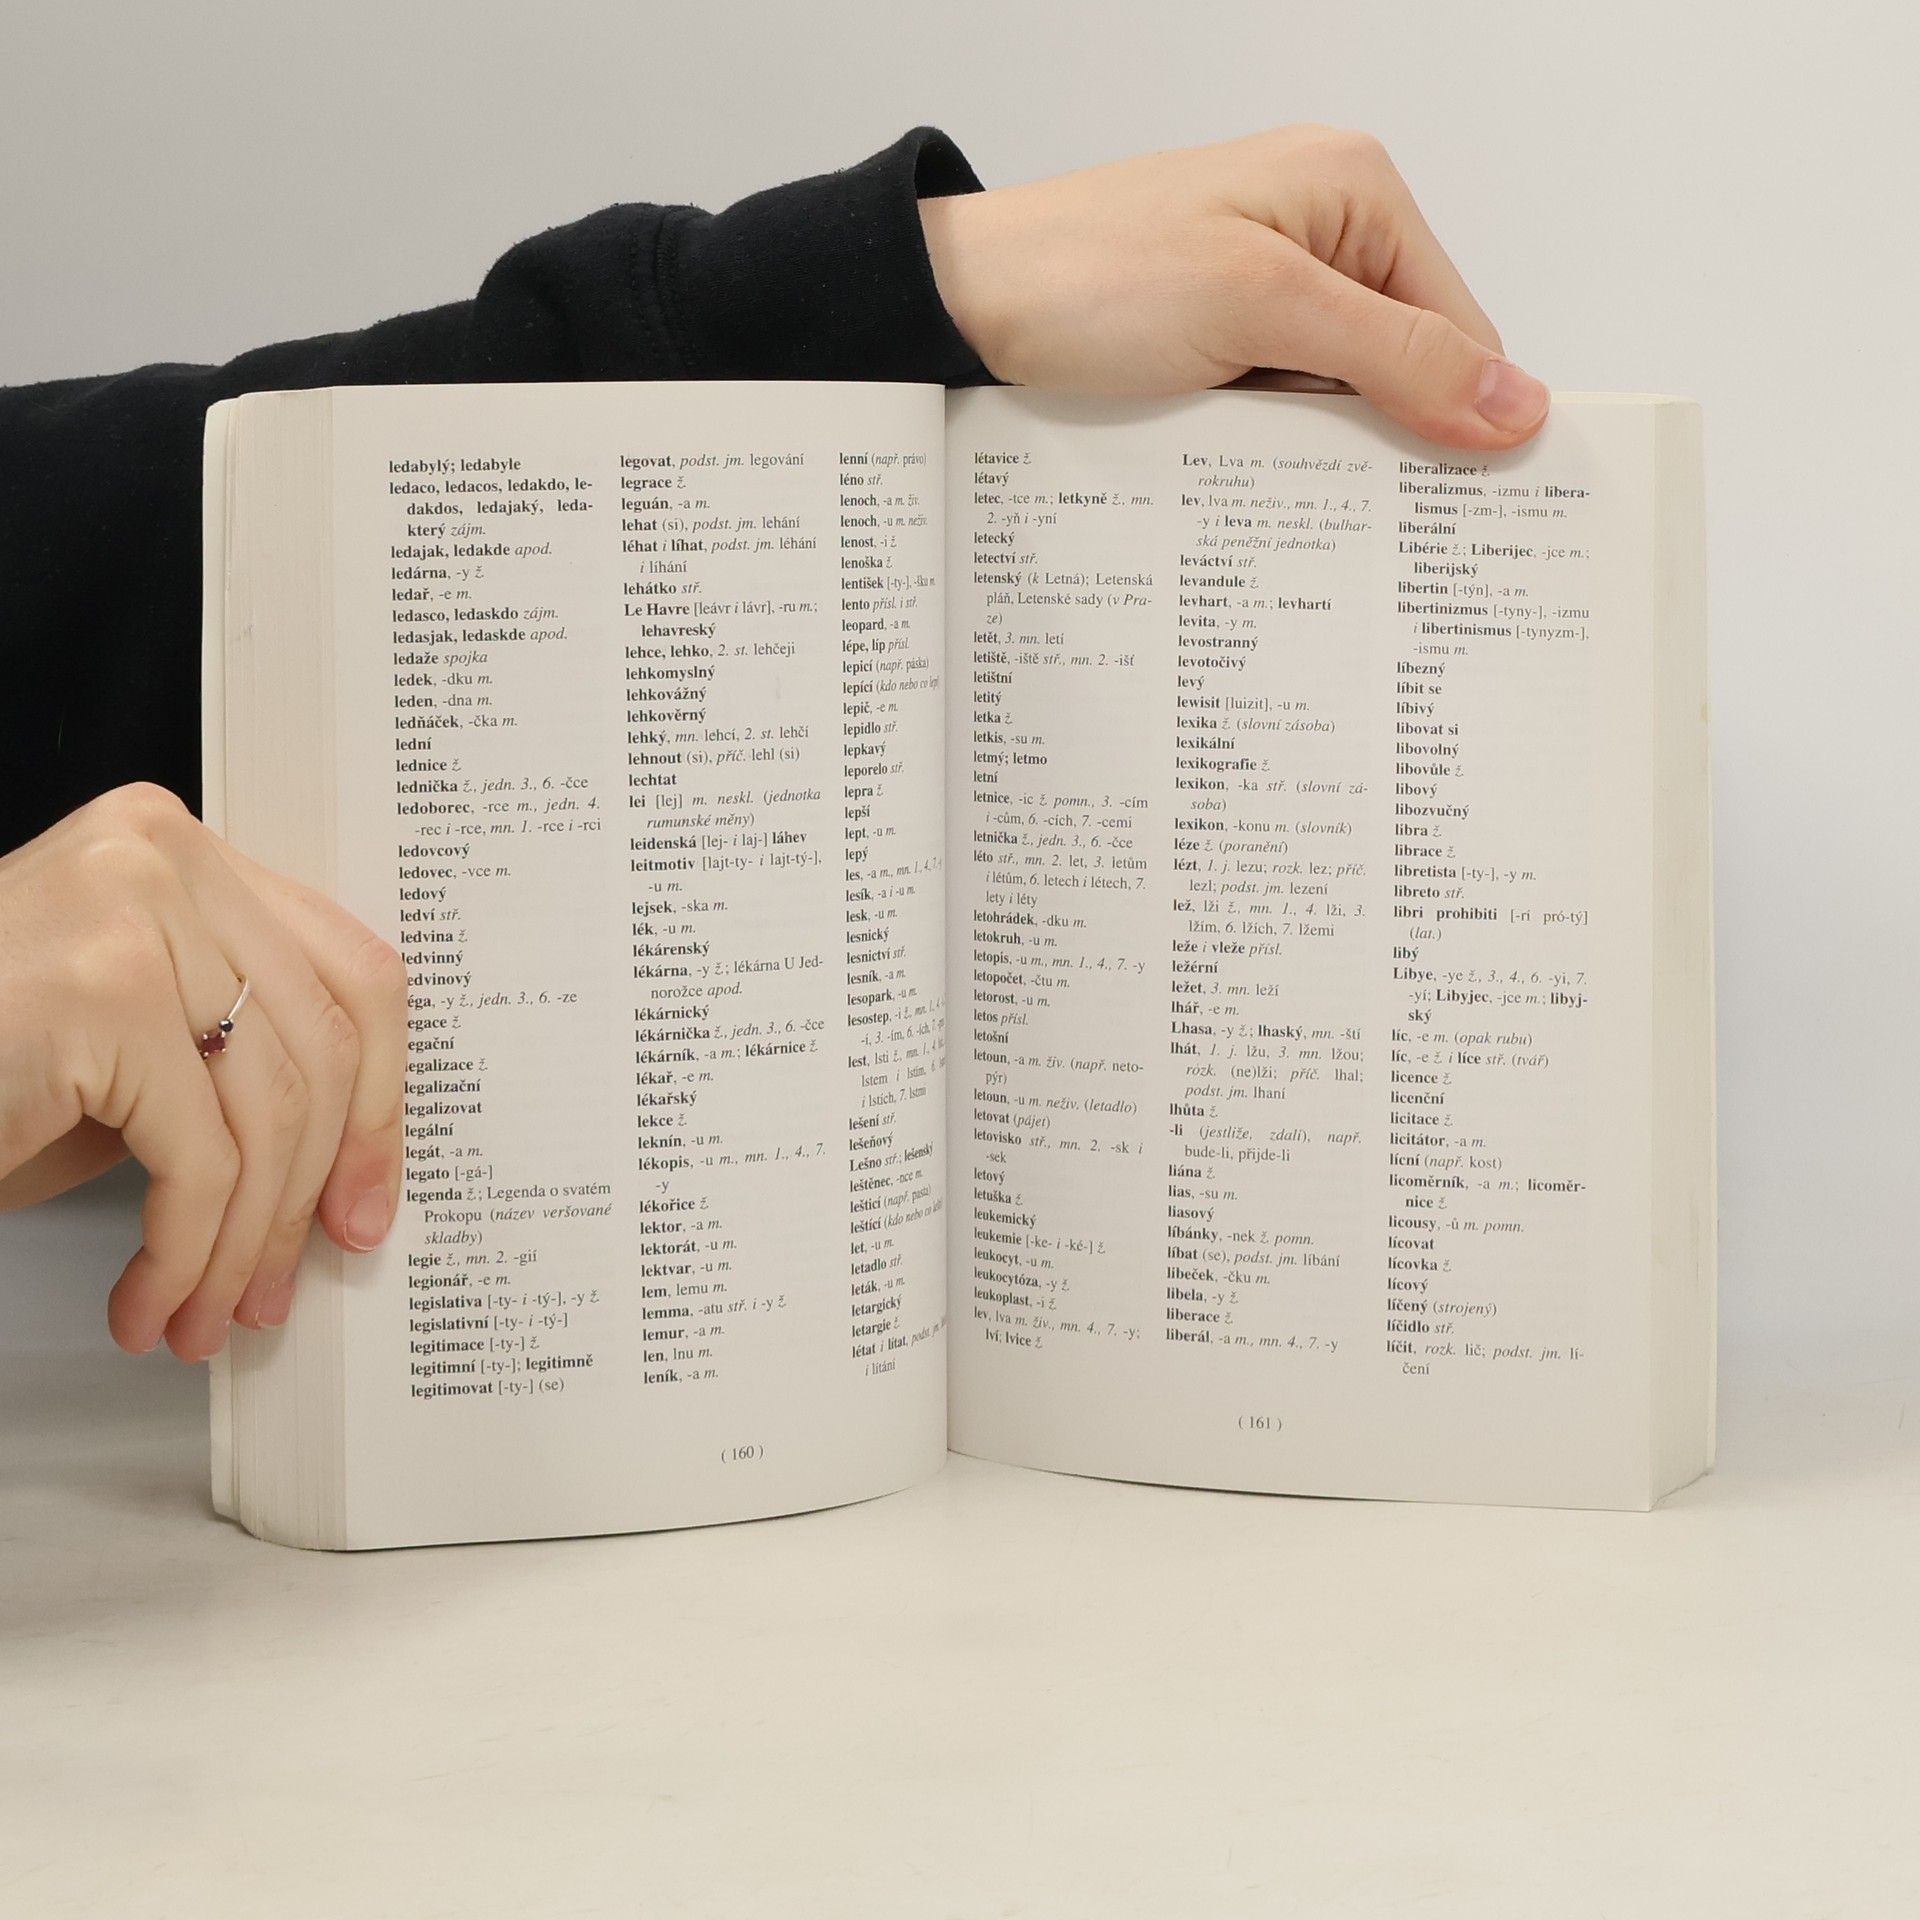 ledabylý; ledabyle
ledaco, ledacos, ledakdo, le-
dakdos, ledajaký, leda-
který zájm.
ledajak, ledakde apod.
ledárna, -y ž.
ledař, -e m.
ledasco, ledaskdo zájm.
ledasjak, ledaskde apod.
ledaže spojka
ledek, -dku m.
leden, -dna m.
ledňáček, -čka m.
lední
lednice ž.
lednička ž., jedn. 3., 6. -čce
ledoborec, -rce m., jedn. 4.
-rec i -rce, mn. 1. -rce i -rci
ledovcový
ledovec, -vce m.
ledový
ledví stř.
ledvina ž.
ledvinný
edvinový
éga, -y ž., jedn. 3., 6. -ze
egace ž.
egační
legalizace ž.
legalizační
legalizovat
legální
legát, -a m.
legato [-gá-]
legenda ž.; Legenda o svatém
Prokopu (název veršované
skladby)
legie ž., mn. 2. -gií
legionář, -e m.
legislativa [-ty- i -tý-], -y ž.
legislativní [-ty- i -tý-]
legitimace [-ty-] ž.
legitimní [-ty-]; legitimně
legitimovat [-ty-] (se)
legovat, podst. jm. legování
legrace ž.
leguán, -a m.
lehat (si), podst. jm. lehání
léhat i líhat, podst. jm. léhání
i líhání
lehátko stř.
Le Havre [leávr i lávr], -ru m.;
lehavreský
lehce, lehko, 2. st. lehčeji
lehkomyslný
lehkovážný
lehkověrný
lehký, mn. lehcí, 2. st. lehčí
lehnout (si), příč. lehl (si)
lechtat
lei [lej] m. neskl. (jednotka
rumunské měny)
leidenská [lej- i laj-] láhev
leitmotiv [lajt-ty- i lajt-tý-],
-u m.
lejsek, -ska m.
lék, -u m.
lékárenský
lékárna, -y ž.; lékárna U Jed-
norožce apod.
lékárnický
lékárnička ž., jedn. 3., 6. -čce
lékárník, -a m.; lékárnice ž.
lékař, -e m.
lékařský
lekce ž.
leknín, -u m.
lékopis, -u m., mn. 1., 4., 7.
-y
lékořice ž.
lektor, -a m.
lektorát, -u m.
lektvar, -u m.
lem, lemu m.
lemma, -atu stř. i -y ž.
lemur, -a m.
len, lnu m.
leník, -a m.
lenní (např. právo)
léno stř.
lenoch, -a m. živ.
lenoch, -u m. neživ.
lenost, -i ž.
lenoška ž.
lentišek [-ty-], -šku m.
lento přísl. i stř.
leopard, -a m.
lépe, líp přísl.
lepicí (např. páska)
lepící (kdo nebo co lepí)
lepič, -e m.
lepidlo stř.
lepkavý
leporelo stř.
lepra ž.
lepší
lept, -u m.
lepý
les, -a m., mn. 1., 4., 7. -y
lesík, -a i -u m.
lesk, -u m.
lesnický
lesnictví stř.
lesník, -a m.
lesopark, -u m.
lesostep, -i ž., mn. 1., 4.
-i, 3. -ím, 6. -ích, 7.
lest, lsti ž., mn. 1., 4.
lstem i lstím, 6.
i lstích, 7. lstmi
lešení stř.
lešeňový
Lešno stř.; lešenský
leštěnec, -nce m.
lešticí (např. pasta)
leštící (kdo nebo co leští)
let, -u m.
letadlo stř.
leták, -u m.
letargický
letargie ž.
létat i lítat, podst. jm.
i lítání
( 160 )
létavice ž.
létavý
letec, -tce m.; letkyně ž., mn.
2. -yň i -yní
letecký
letectví stř.
letenský (k Letná); Letenská
pláň, Letenské sady (v Pra-
ze)
letět, 3. mn. letí
letiště, -iště stř., mn. 2. -išť
letištní
letitý
letka ž.
letkis, -su m.
letmý; letmo
letní
letnice, -ic ž. pomn., 3. -cím
i -cům, 6. -cích, 7. -cemi
letnička ž., jedn. 3., 6. -čce
léto stř., mn. 2. let, 3. letům
i létům, 6. letech i létech, 7.
lety i léty
letohrádek, -dku m.
letokruh, -u m.
letopis, -u m., mn. 1., 4., 7. -y
letopočet, -čtu m.
letorost, -u m.
letos přísl.
letošní
letoun, -a m. živ. (např. neto-
pýr)
letoun, -u m. neživ. (letadlo)
letovat (pájet)
letovisko stř., mn. 2. -sk i
-sek
letový
letuška ž.
leukemický
leukemie [-ke- i -ké-] ž.
leukocyt, -u m.
leukocytóza, -y ž.
leukoplast, -i ž.
lev, lva m. živ., mn. 4., 7. -y;
lví; lvice ž.
Lev, Lva m. (souhvězdí zvě-
rokruhu)
lev, lva m. neživ., mn. 1., 4., 7.
-y i leva m. neskl. (bulhar-
ská peněžní jednotka)
leváctví stř.
levandule ž.
levhart, -a m.; levhartí
levita, -y m.
levostranný
levotočivý
levý
lewisit [luizit], -u m.
lexika ž. (slovní zásoba)
lexikální
lexikografie ž.
lexikon, -ka stř. (slovní zá-
soba)
lexikon, -konu m. (slovník)
léze ž. (poranění)
lézt, 1. j. lezu; rozk. lez; příč.
lezl; podst. jm. lezení
lež, lži ž., mn. 1., 4. lži, 3.
lžím, 6. lžích, 7. lžemi
leže i vleže přísl.
ležérní
ležet, 3. mn. leží
lhář, -e m.
Lhasa, -y ž.; lhaský, mn. -ští
lhát, 1. j. lžu, 3. mn. lžou;
rozk. (ne)lži; příč. lhal;
podst. jm. lhaní
lhůta ž.
-li (jestliže, zdali), např.
bude-li, přijde-li
liána ž.
lias, -su m.
liasový
líbánky, -nek ž. pomn.
líbat (se), podst. jm. líbání
libeček, -čku m.
libela, -y ž.
liberace ž.
liberál, -a m., mn. 4., 7. -y
liberalizace ž.
liberalizmus, -izmu i libera-
lismus [-zm-], -ismu m.
liberální
Libérie ž.; Liberijec, -jce m.;
liberijský
libertin [-týn], -a m.
libertinizmus [-tyny-], -izmu
i libertinismus [-tynyzm-],
-ismu m.
líbezný
líbit se
líbivý
libovat si
libovolný
libovůle ž.
libový
libozvučný
libra ž.
librace ž.
libretista [-ty-], -y m.
libreto stř.
libri prohibiti [-rí pró-tý]
(lat.)
libý
Libye, -ye ž., 3., 4., 6. -yi, 7.
-yí; Libyjec, -jce m.; libyj-
ský
líc, -e m. (opak rubu)
líc, -e ž. i líce stř. (tvář)
licence ž.
licenční
licitace ž.
licitátor, -a m.
lícní (např. kost)
licoměrník, -a m.; licoměr-
nice ž.
licousy, -ů m. pomn.
lícovat
lícovka ž.
lícový
líčený (strojený)
líčidlo stř.
líčit, rozk. lič; podst. jm. lí-
čení
( 161 )